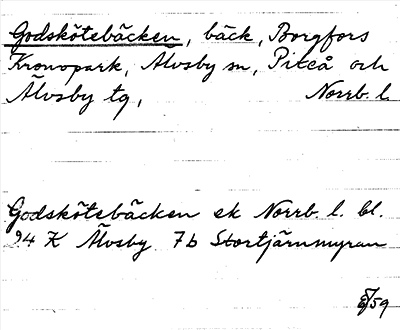 Godskötebäcken, bäck, Borgfors
Kronopark, Älvsby sn, Piteå och
Älvsby tg, Norrb. l.
Godskötebäcken ek Norrb. l. bl.
24 K Älvsby 7b Stortjärnmyran